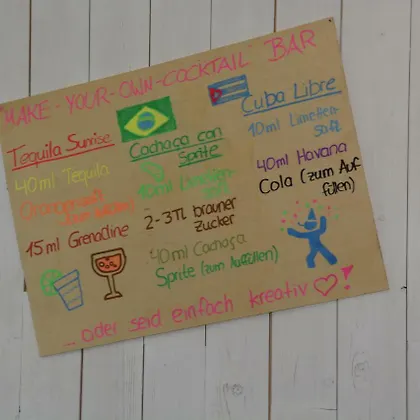 MAKE-YOUR-OWN-COCKTAIL BAR
Tequila Sunrise
40ml Tequila
Orangensaft
(zum Auffüllen)
15ml Grenadine
Cachaça con
Sprite
10ml Limetten-
saft
2-3TL brauner
Zucker
40ml Cachaça
Sprite (zum Auffüllen)
Cuba Libre
10ml Limetten-
saft
40ml Havana
Cola (zum Auf-
füllen)
...oder seid einfach kreativ ♡!